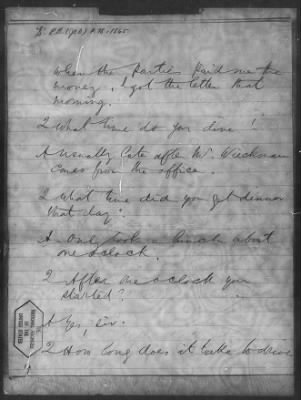 When the parties paid me the
money. I got the letter that
morning.
Q What time do you dine?
A usually late after Mr. Wieckman
comes from the office.
Q What time did you get dinner
that day?
A Only took a lunch about
one o'clock.
Q After one o'clock you
started?
A Yes, sir.
Q How long does it take to drive